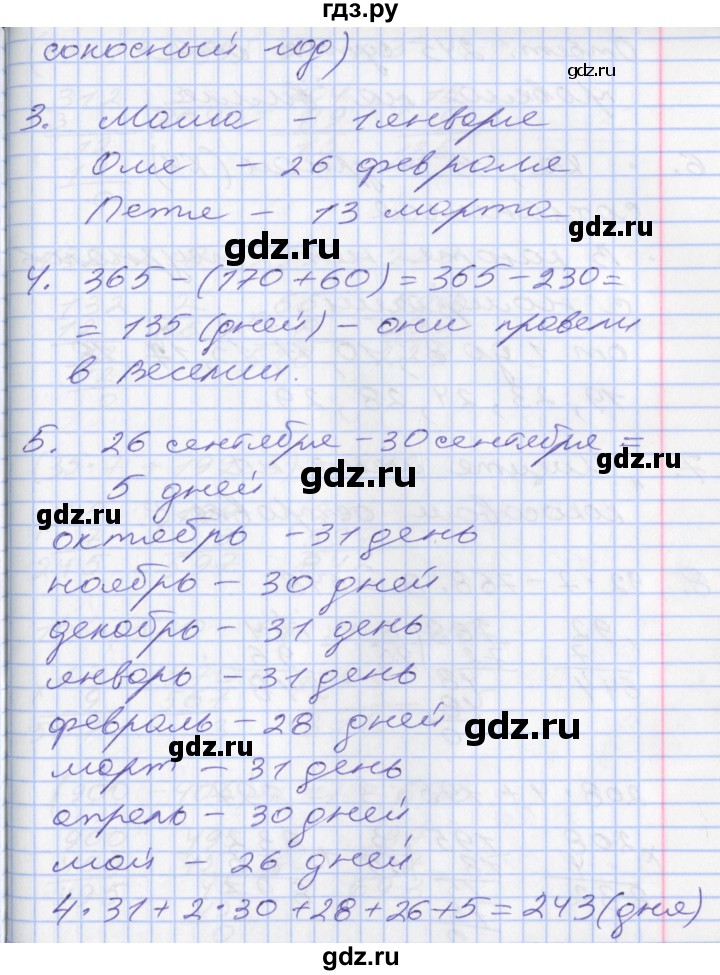 гдз.ру
сокосный год)
gdz.ru
3. Маша – 1 января
Оля – 26 февраля
Петя – 13 марта
gdz.ru
gdz.ru
4. 365 – (170 + 60) = 365 – 230 =
= 135 (дней) – они провели
gdz.ru
в Веселии.
5. 26 сентября – 30 сентября =
gdz.ru
gdz.ru
5 дней
gdz.ru
октябрь – 31 день
ноябрь – 30 дней
gdz.ru
декабрь – 31 день
январь – 31 день
февраль – 28 дней
gdz.ru
gdz.ru
март – 31 день
апрель – 30 дней
май – 26 дней
gdz.ru
4·31 + 2·30 + 28 + 26 + 5 = 243 (дня)
gdz.ru
gdz.ru